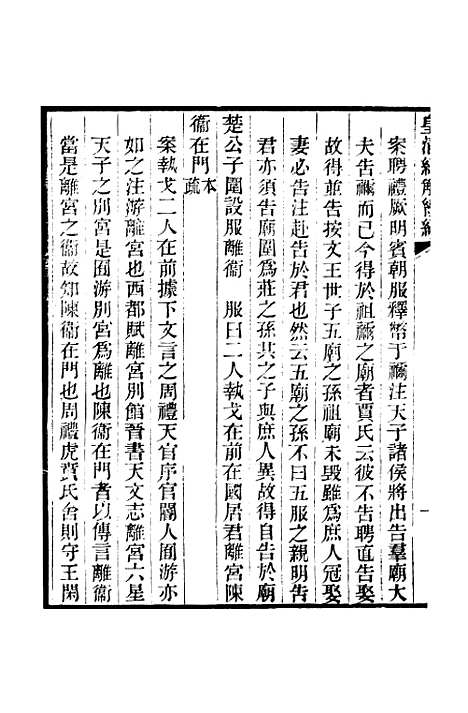 皇清經解續編
案聘禮厥明賓朝服釋幣于禰注天子諸侯將出告羣廟大
夫告禰而已今得於祖禰之廟者賈氏云彼不告聘直告娶
故得並告按文王世子五廟之孫祖廟未毀雖爲庶人冠娶
妻必告注赴告於君也然云五廟之孫不曰五服之親明告
君亦須告廟圍爲莊之孫共之子與庶人異故得自告於廟
楚公子圍設服離衞 服曰二人執戈在前在國居君離宮陳
衞在門本疏
案執戈二人在前據下文言之周禮天官序官閽人囿游亦
如之注游離宮也西都賦離宮別館晉書天文志離宮六星
天子之別宮是囿游別宮爲離也陳衞在門者以傳言離衞
當是離宮之衞故知陳衞在門也周禮虎賁氏舍則守王閑
一